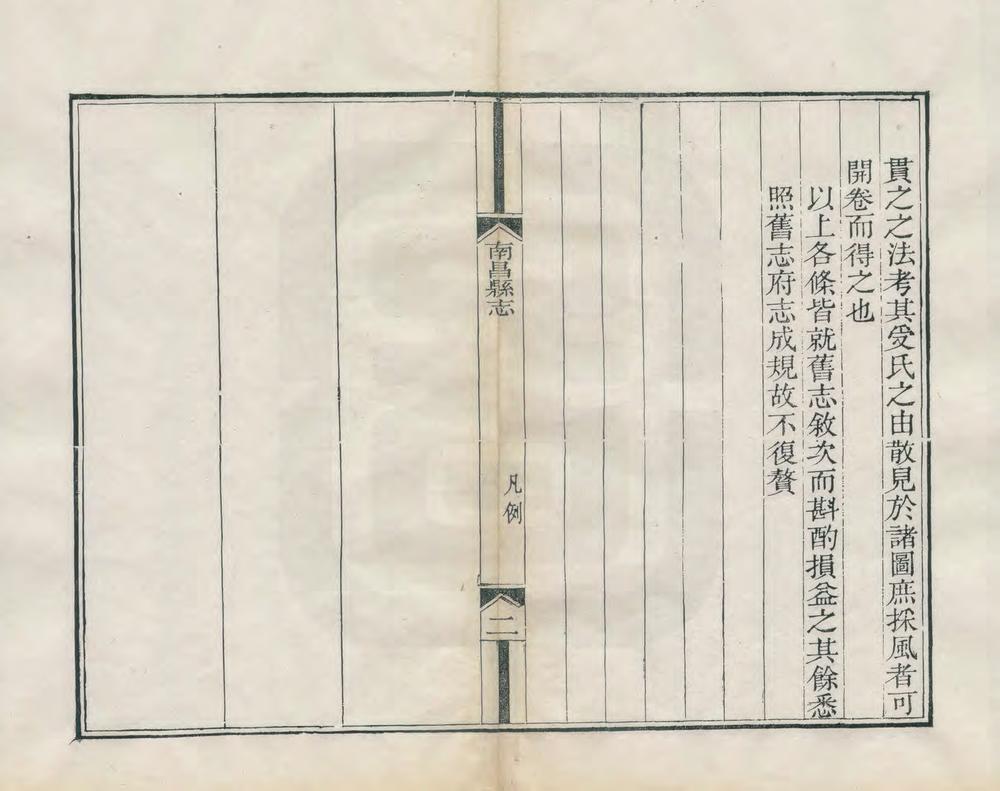 貫之之法考其受氏之由散見於諸圖庶採風者可
開卷而得之也
以上各條皆就舊志敘次而斟酌損益之其餘悉
照舊志府志成規故不復贅
南昌縣志
凡例
二